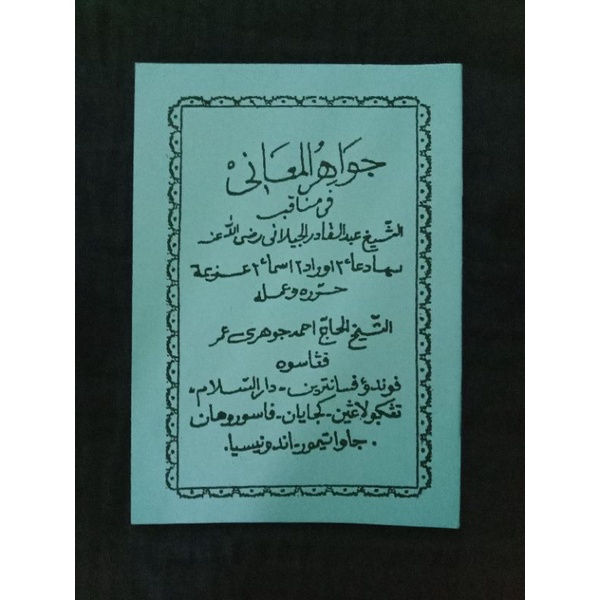 جَوَاهِرُ المَعَانِىْ
فى مناقب
الشّيخ عبد القادر الجيلانى رضى الله عنه
بهادعاء٢ اوراد٢ اسماء٢ عزيمة
حرّره وعمله
الشّيخ الحاجّ احمد جوهرى عمر
ڤڠاسوه
ڤوندؤ ڤسانترين - دار السّلام -
تڠكولاڠين - كجايان - ڤاسوروهان
. جاوا تيمور - اندونيسيا .